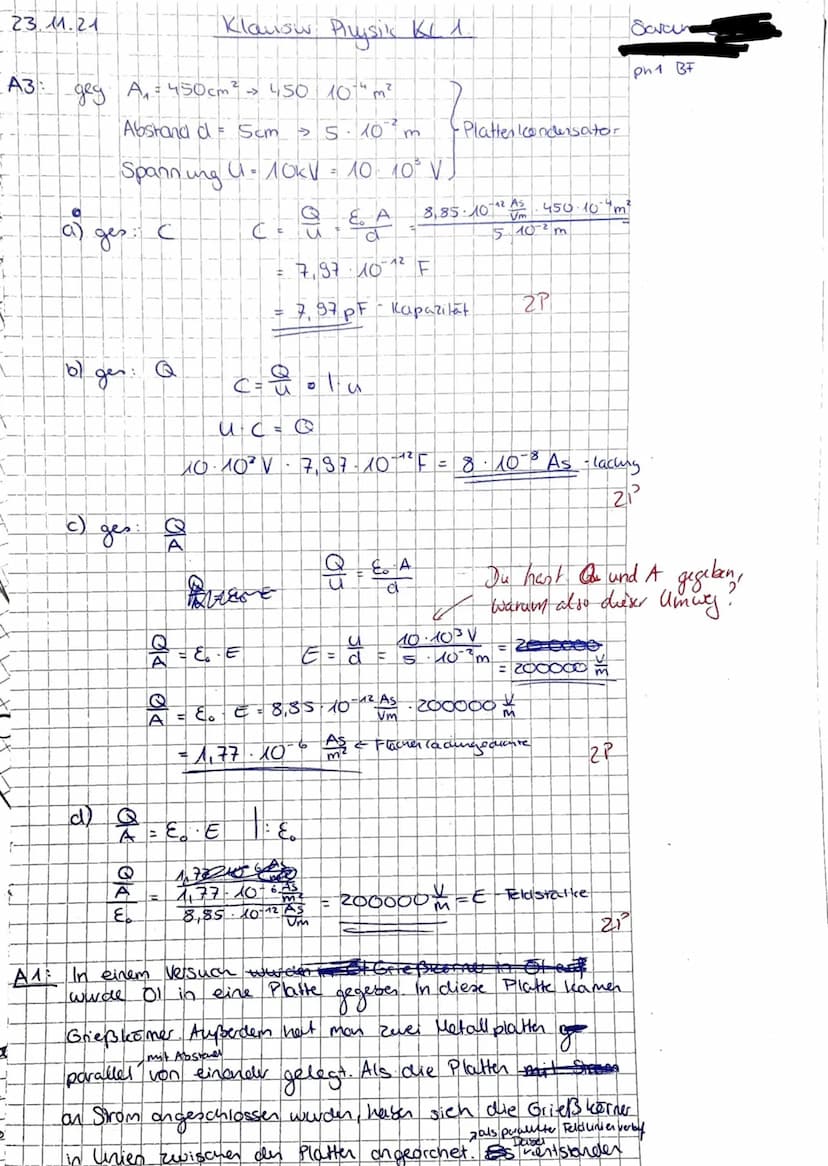 23.11.21 Klausur Physik KL 1 Sarah
ph1 BF
A3: geg A₁ = 450 cm² → 450 10⁻⁴ m²
Abstand d = 5cm → 5 · 10⁻² m } Plattenkondensator
Spannung U = 10kV = 10 · 10³ V
a) ges: C C = Q/U = ε₀ A/d = 8,85 · 10⁻¹² As/Vm · 450 · 10⁻⁴ m² / 5 · 10⁻² m
= 7,97 · 10⁻¹² F
= 7,97 pF - Kapazität 2P
b) ges: Q C = Q/U | · U
U · C = Q
10 · 10³ V · 7,97 · 10⁻¹² F = 8 · 10⁻⁸ As - Ladung
2P
c) ges: Q/A
Q/U = ε₀ · A/d
Du hast Q und A gegeben,
warum also dieser Umweg?
Q/A = ε₀ · E E = U/d = 10 · 10³ V / 5 · 10⁻² m = 200000
= 200000 V/m
Q/A = ε₀ · E = 8,85 · 10⁻¹² As/Vm · 200000 V/m
= 1,77 · 10⁻⁶ As/m² ← Flächenladungsdichte 2P
d) Q/A = ε₀ · E | : ε₀
Q/A / ε₀ = 1,77 · 10⁻⁶ As/m² / 8,85 · 10⁻¹² As/Vm = 200000 V/m = E - Feldstärke
2P
A1: In einem Versuch wurden Grießkörner in Öl auf
wurde Öl in eine Platte gegeben. In diese Platte kamen
Grießkörner. Außerdem hat man zwei Metallplatten
parallel mit Abstand von einander gelegt. Als die Platten mit Strom
an Strom angeschlossen wurden, haben sich die Grießkörner
in Linien zwischen den Platten angeordnet. Es Dabei entstanden
als paralleler Feldlinienverlauf